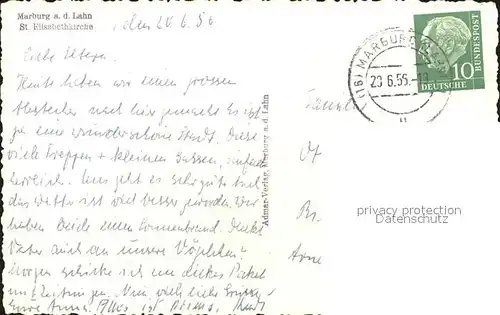 Marburg a. d. Lahn
St. Elisabethkirche
den 20.6.56
Liebe Eltern.
Heute haben wir einen grossen
Abstecher nach hier gemacht. Es ist
ja eine wunderschöne Stadt. Diese
viele Treppen + kleinen Gassen, einfach
herrlich. Uns geht es sehr gut und
das Wetter ist viel besser geworden. Wir
haben beide einen Sonnenbrand. Denkt
Vater auch an unsere Vögelchen?
Morgen schicke ich ein dickes Paket
mit Zeitungen. Nun viele liebe Grüsse
Eure Anna.
Admar-Verlag, Marburg a. d. Lahn
(16) MARBURG (LAHN)
20.6.56
10
DEUTSCHE
BUNDESPOST
Famil
privacy protection
Datenschutz